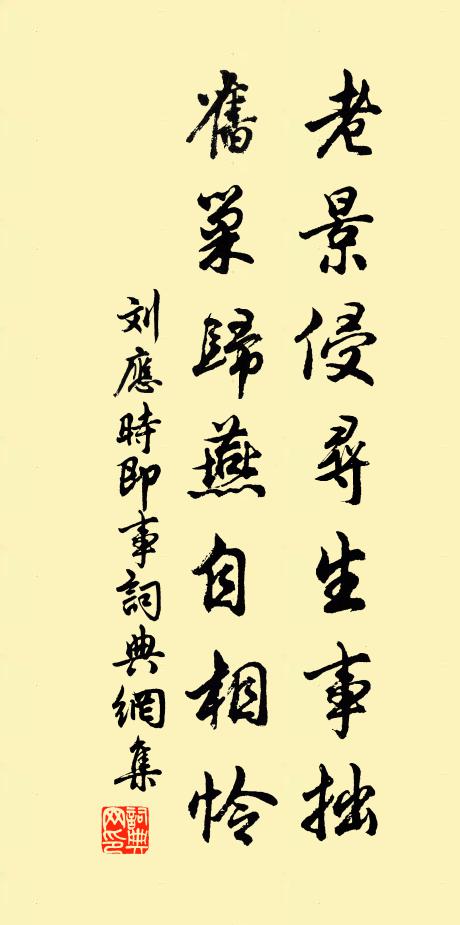 老景侵尋生事拙
舊巢歸燕自相怜
刘應時即事詞典網集
詞典網印